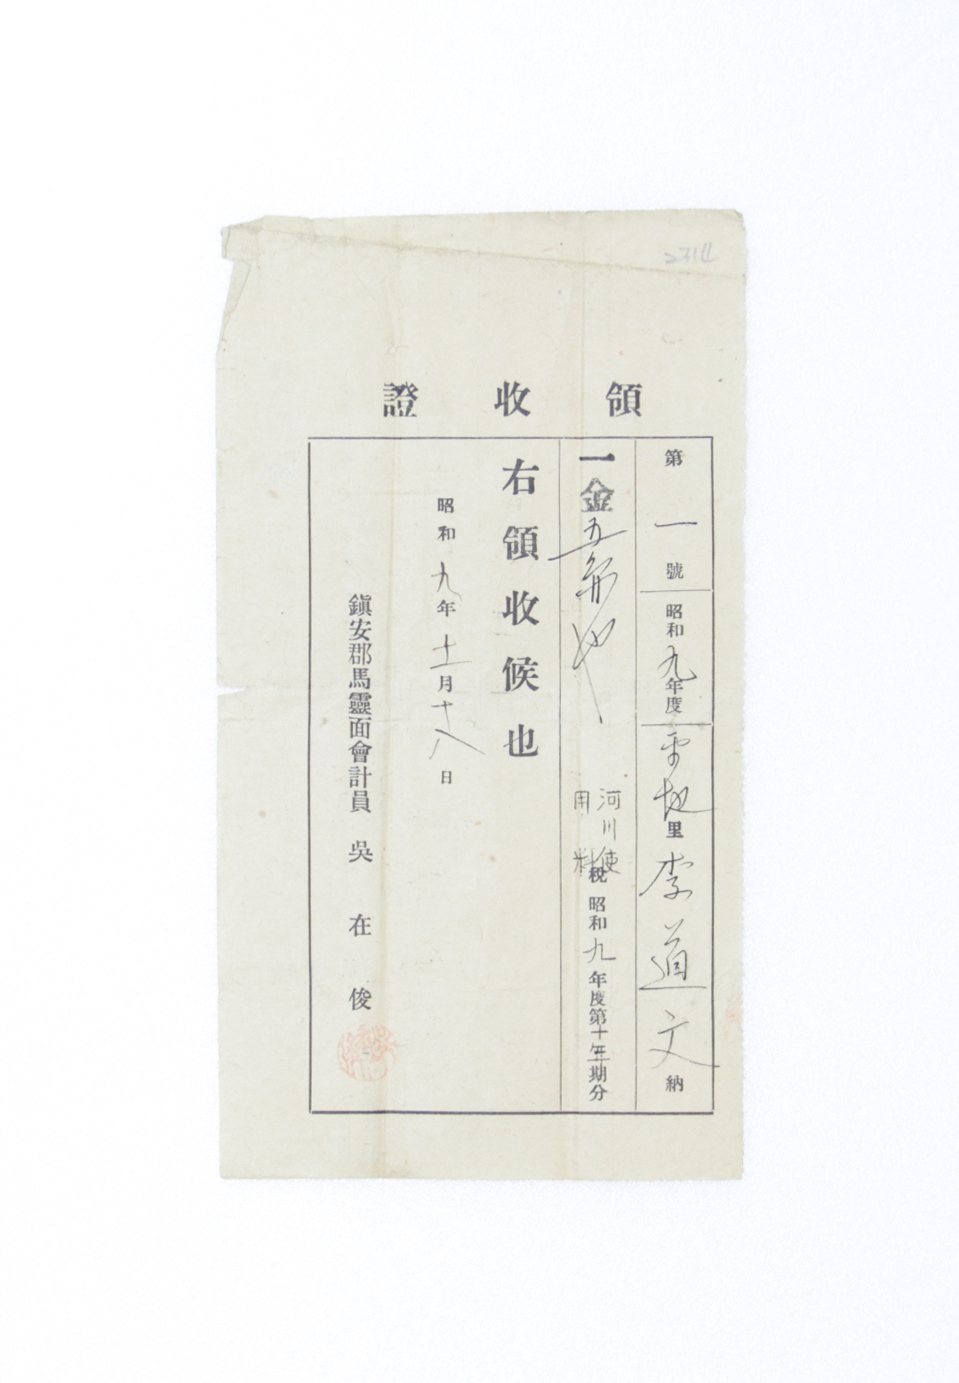 領收證
第一號 昭和九年度 平地里 李道文 納
一金五弁也 河川使用料 稅 昭和九年度第 期分
右領收候也
昭和九年十一月十八日
鎭安郡馬靈面會計員 吳在俊